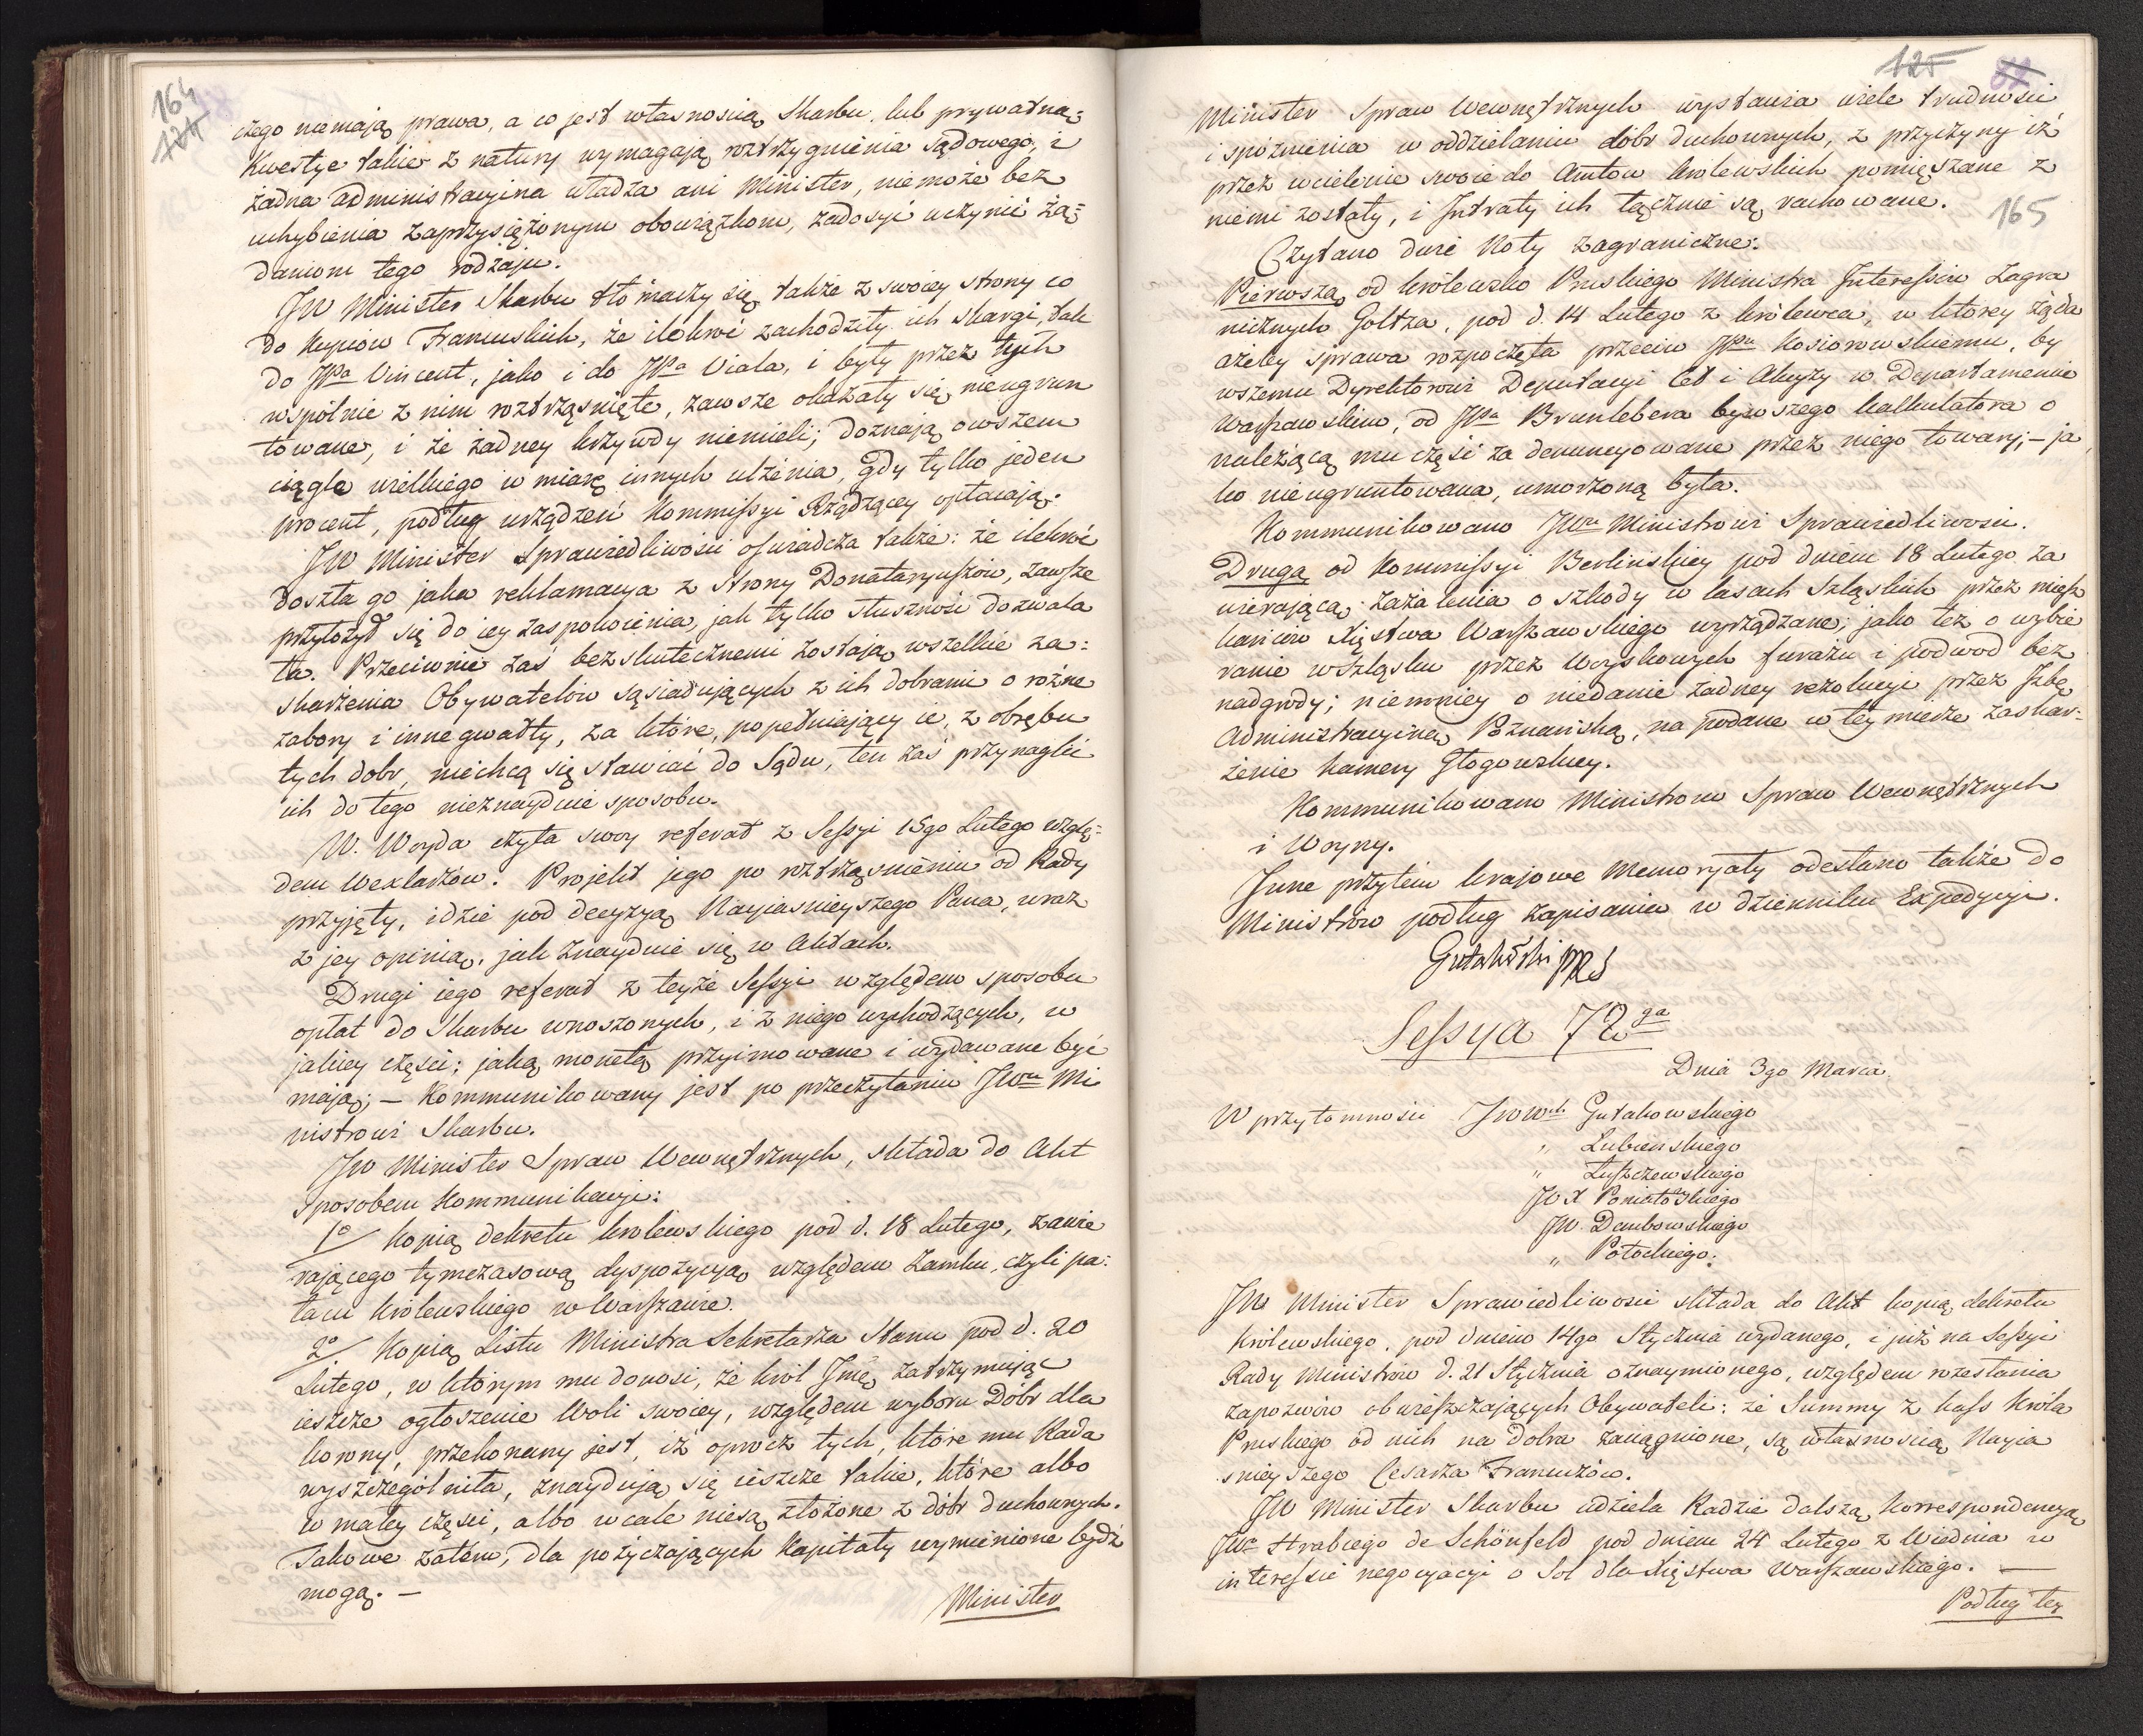 164
124
czego niemają prawa, a co jest własnością Skarbu, lub prywatną;
Kwestye takie z natury wymagają roztrzygnienia sądowego, i
żadna administracyina władza ani Minister, niemoże bez
uchybienia zaprzysiężonym obowiązkom, zadosyć uczynić żą-
daniom tego rodzaju.
JW Minister Skarbu tłomaczy się także z swoiey strony co
do kupców Francuskich, że ilekroć zachodziły ich skargi, tak
do JPa Vincent, jako i do JPa Viala, i były przez tych
wspólnie z nim roztrząsnięte, zawsze okazały się nieugrun
towane, i że żadney krzywdy niemieli; doznają owszem
ciągle wielkiego w miarę innych ulżenia, gdy tylko jeden
procent, podług urządzeń Kommissyi Rządzącey opłacają.
JW Minister Sprawiedliwości oświadcza także: że ilekroć
doszła go jaka reklamacya z strony Donataryuszów, zawsze
przyłożył się do iey zaspokoienia, jak tylko słuszność dozwala
ła. Przeciwnie zaś bezskutecznemi zostają wszelkie za:
skarżenia Obywatelów sąsiadujących z ich dobrami o różne
zabory i inne gwałty, za które, popełniający ie, z obrębu
tych dobr, niechcą się stawiać do Sądu, ten zaś przynaglić
ich do tego nieznayduie sposobu.
W. Woyda czyta swoy referat z Sessyi 15go Lutego wzglę-
dem Wexlarzów. Projekt jego po roztrząśnieniu od Rady
przyjęty, idzie pod decyzyą Nayiaśnieyszego Pana, wraz
z jey opinią, jak znayduie się w Aktach.
Drugi iego referat z teyże Sessyi względem sposobu
opłat do Skarbu wnoszonych, i z niego wychodzących, w
jakiey części; jaką monetą przyimowane i wydawane być
mają; – Kommunikowany jest po przeczytaniu JWu Mi
nistrowi Skarbu.
JW Minister Spraw Wewnętrznych, składa do Akt
sposobem Kommunikacyi:
1o/ Kopią dekretu królewskiego pod d. 18 Lutego, zawie
rającego tymczasową dyspozycyą względem Zamku, czyli pa:
łacu królewskiego w Warszawie.
2o/ Kopią Listu Ministra Sekretarza Stanu pod d. 20
Lutego, w którym mu donosi, że król Jmć, zatrzymując
ieszcze ogłoszenie Woli swoiey, względem wyboru Dóbr dla
korony, przekonany jest, iż oprócz tych, które mu Rada
wyszczególniła, znaydują się ieszcze takie, które albo
w małey części, albo wcale niesą złożone z dóbr duchownych.
Takowe zatem, dla pożyczających kapitały wymienione bydź
mogą. –
Minister
125
165
Minister Spraw Wewnętrznych wystawia wiele trudności
i spóźnienia w oddzielaniu dóbr duchownych, z przyczyny iż
przez wcielenie swoie do Amtów królewskich pomięszane z
niemi zostały, i Intraty ich łącznie są rachowane.
Czytano dwie Noty zagraniczne:
Pierwszą od królewsko Pruskiego Ministra Interessów Zagra
nicznych Goltza, pod d. 14 Lutego z królewca, w którey żąda
ażeby sprawa rozpoczęta przeciw JPu Kosiorowskiemu, by
wszemu Dyrektorowi Deputacyi Ceł i Akcyzy w Departamencie
Warszawskim, od JPa Brunlebera bywszego kalkulatora o
należącą mu część za denuncyowane przez niego towary; – ja
ko nieugruntowana, umorzoną była.
Kommunikowano JWu Ministrowi Sprawiedliwości.
Drugą od Kommissyi Berlińskiey pod dniem 18 Lutego za
wierającą zażalenia o szkody w lasach Szląskich przez miesz
kańców Xięstwa Warszawskiego wyrządzane; jako też o wybie
ranie w Szląsku przez Woyskowych furażu i podwod bez
nadgrody; niemniey o niedanie żadney rezolucyi przez Izbę
Administracyiną Poznańską, na podane w tey mierze zaskar-
żenie Kamery Głogowskiey.
Kommunikowano Ministrom Spraw Wewnętrznych
i Woyny.
Inne przytem krajowe Memoryały odesłano także do
Ministrów podług zapisania w dzienniku Expedycyi.
Gutakowski PRS
Sessya 72ga
Dnia 3go Marca.
W przytomności JWWch Gutakowskiego
" Lubienskiego
" Łuszczewskiego
JO X Poniatowskiego
JW. Dembowskiego
" Potockiego.
JW Minister Sprawiedliwości składa do Akt kopią dekretu
Królewskiego, pod dniem 14go Stycznia wydanego, i już na Sessyi
Rady Ministrów d. 21 Stycznia oznaymionego, względem rozesłania
zapozwów obwieszczających Obywateli: że Summy z kass Króla
Pruskiego od nich na dobra zaciągnione, są własnością Nayia
śnieyszego Cesarza Francuzów.
JW Minister Skarbu udziela Radzie dalszą korrespondencyą
JWo Hrabiego de Schönfeld pod dniem 24 Lutego z Wiednia w
interessie negocyacyi o Sól dla Xięstwa Warszawskiego. —
Podług tey